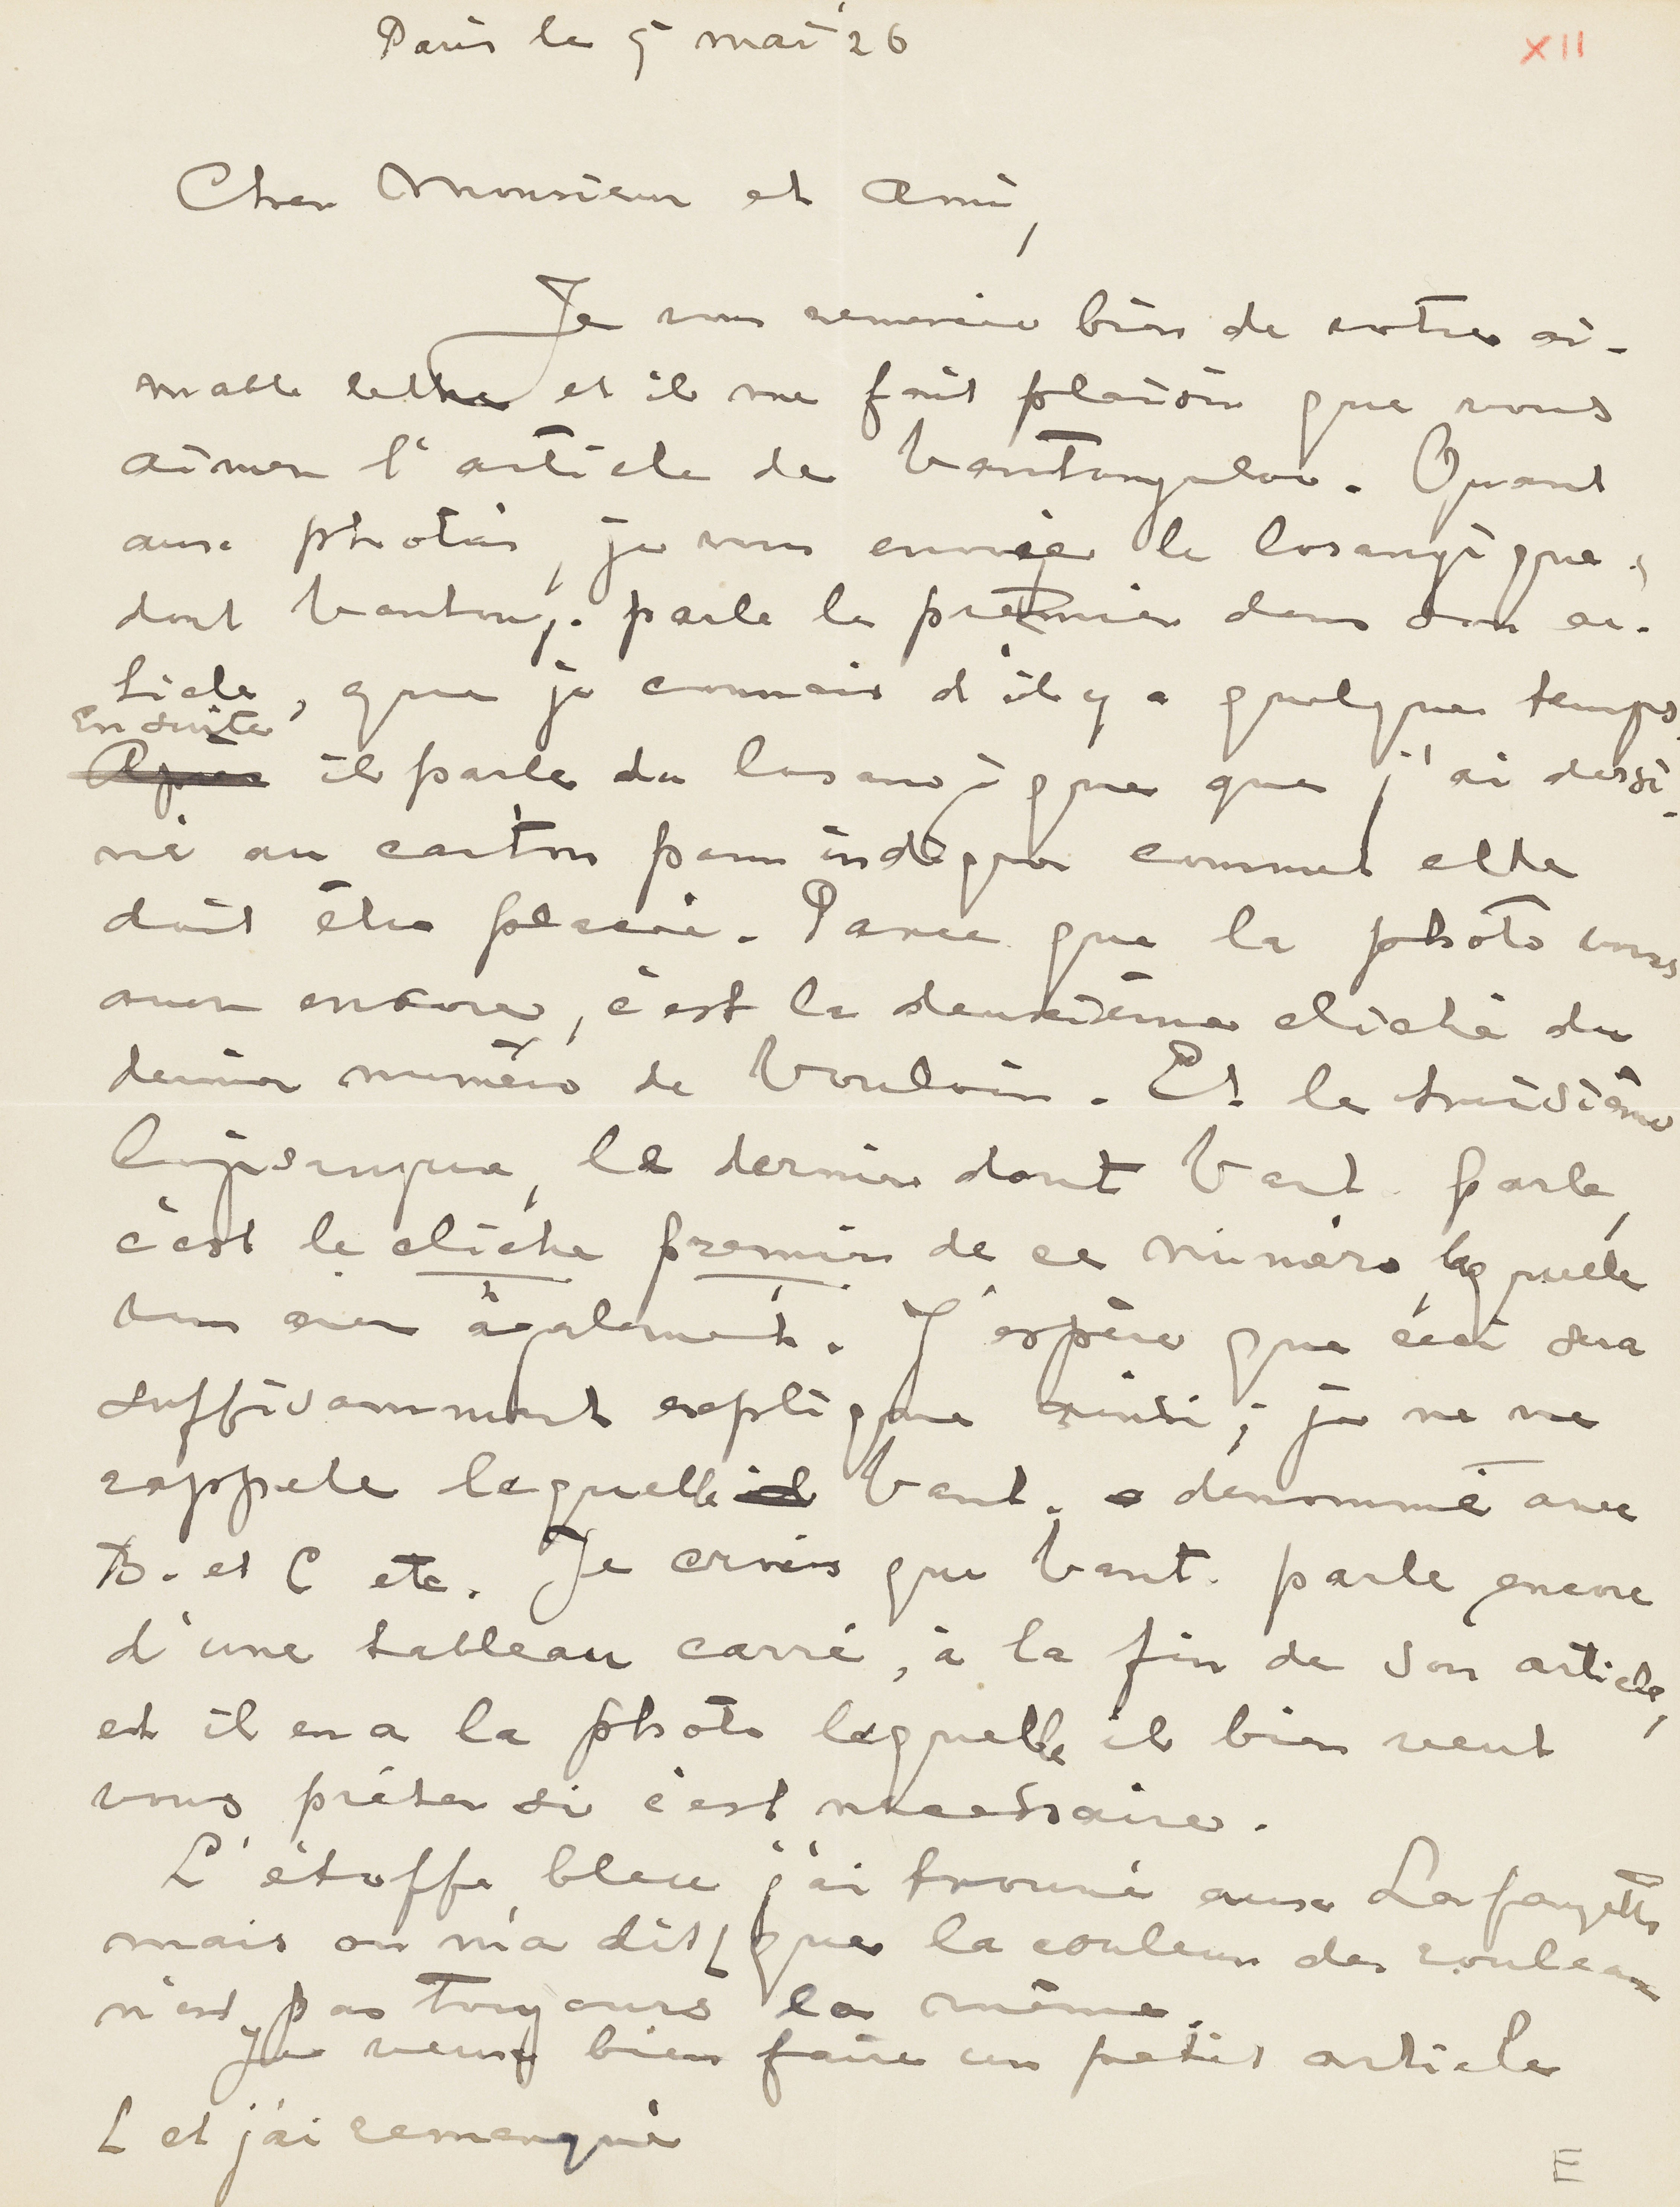 Paris le 5 mai '26
XII
Cher Monsieur et Ami,
Je vous remercie bien de votre ai-
mable lettre et il me fait plaisir que vous
aimez l'article de Vantongeloo. Quant
aux photos, je vous envoie le losangique,
dont Vanton,. parle le premier dans son ar-
ticle, que je connais d'il y a quelques temps.
Ensuite
Apres il parle du losangique que j'ai dessi-
né au carton pour indiquer comment elle
doit être placée. Parce que la photo vous
avez encore, c'est la deuxième cliché du
dernier numéro de Vouloir. Et le troisième
losangique, le dernier dont Vant. parle,
c'est le cliché premier de ce numéro, laquelle
vous avez également. J'espère que ceci sera
suffisamment expliqué ainsi; je ne me
rappele laquelle il Vant. a denommé avec
B. et C etc. Je crois que Vant. parle encore
d'une tableau carré, à la fin de son article,
et il en a la photo laquelle il bien veut
vous préter si c'est necessaire.
L'étoffe bleu j'ai trouvé aux Lafayette
mais on m'a dit [ que la couleur des rouleaux
n'est pas toujours la même.
Je veux bien faire un petit article
[ et j'ai remarqué
E